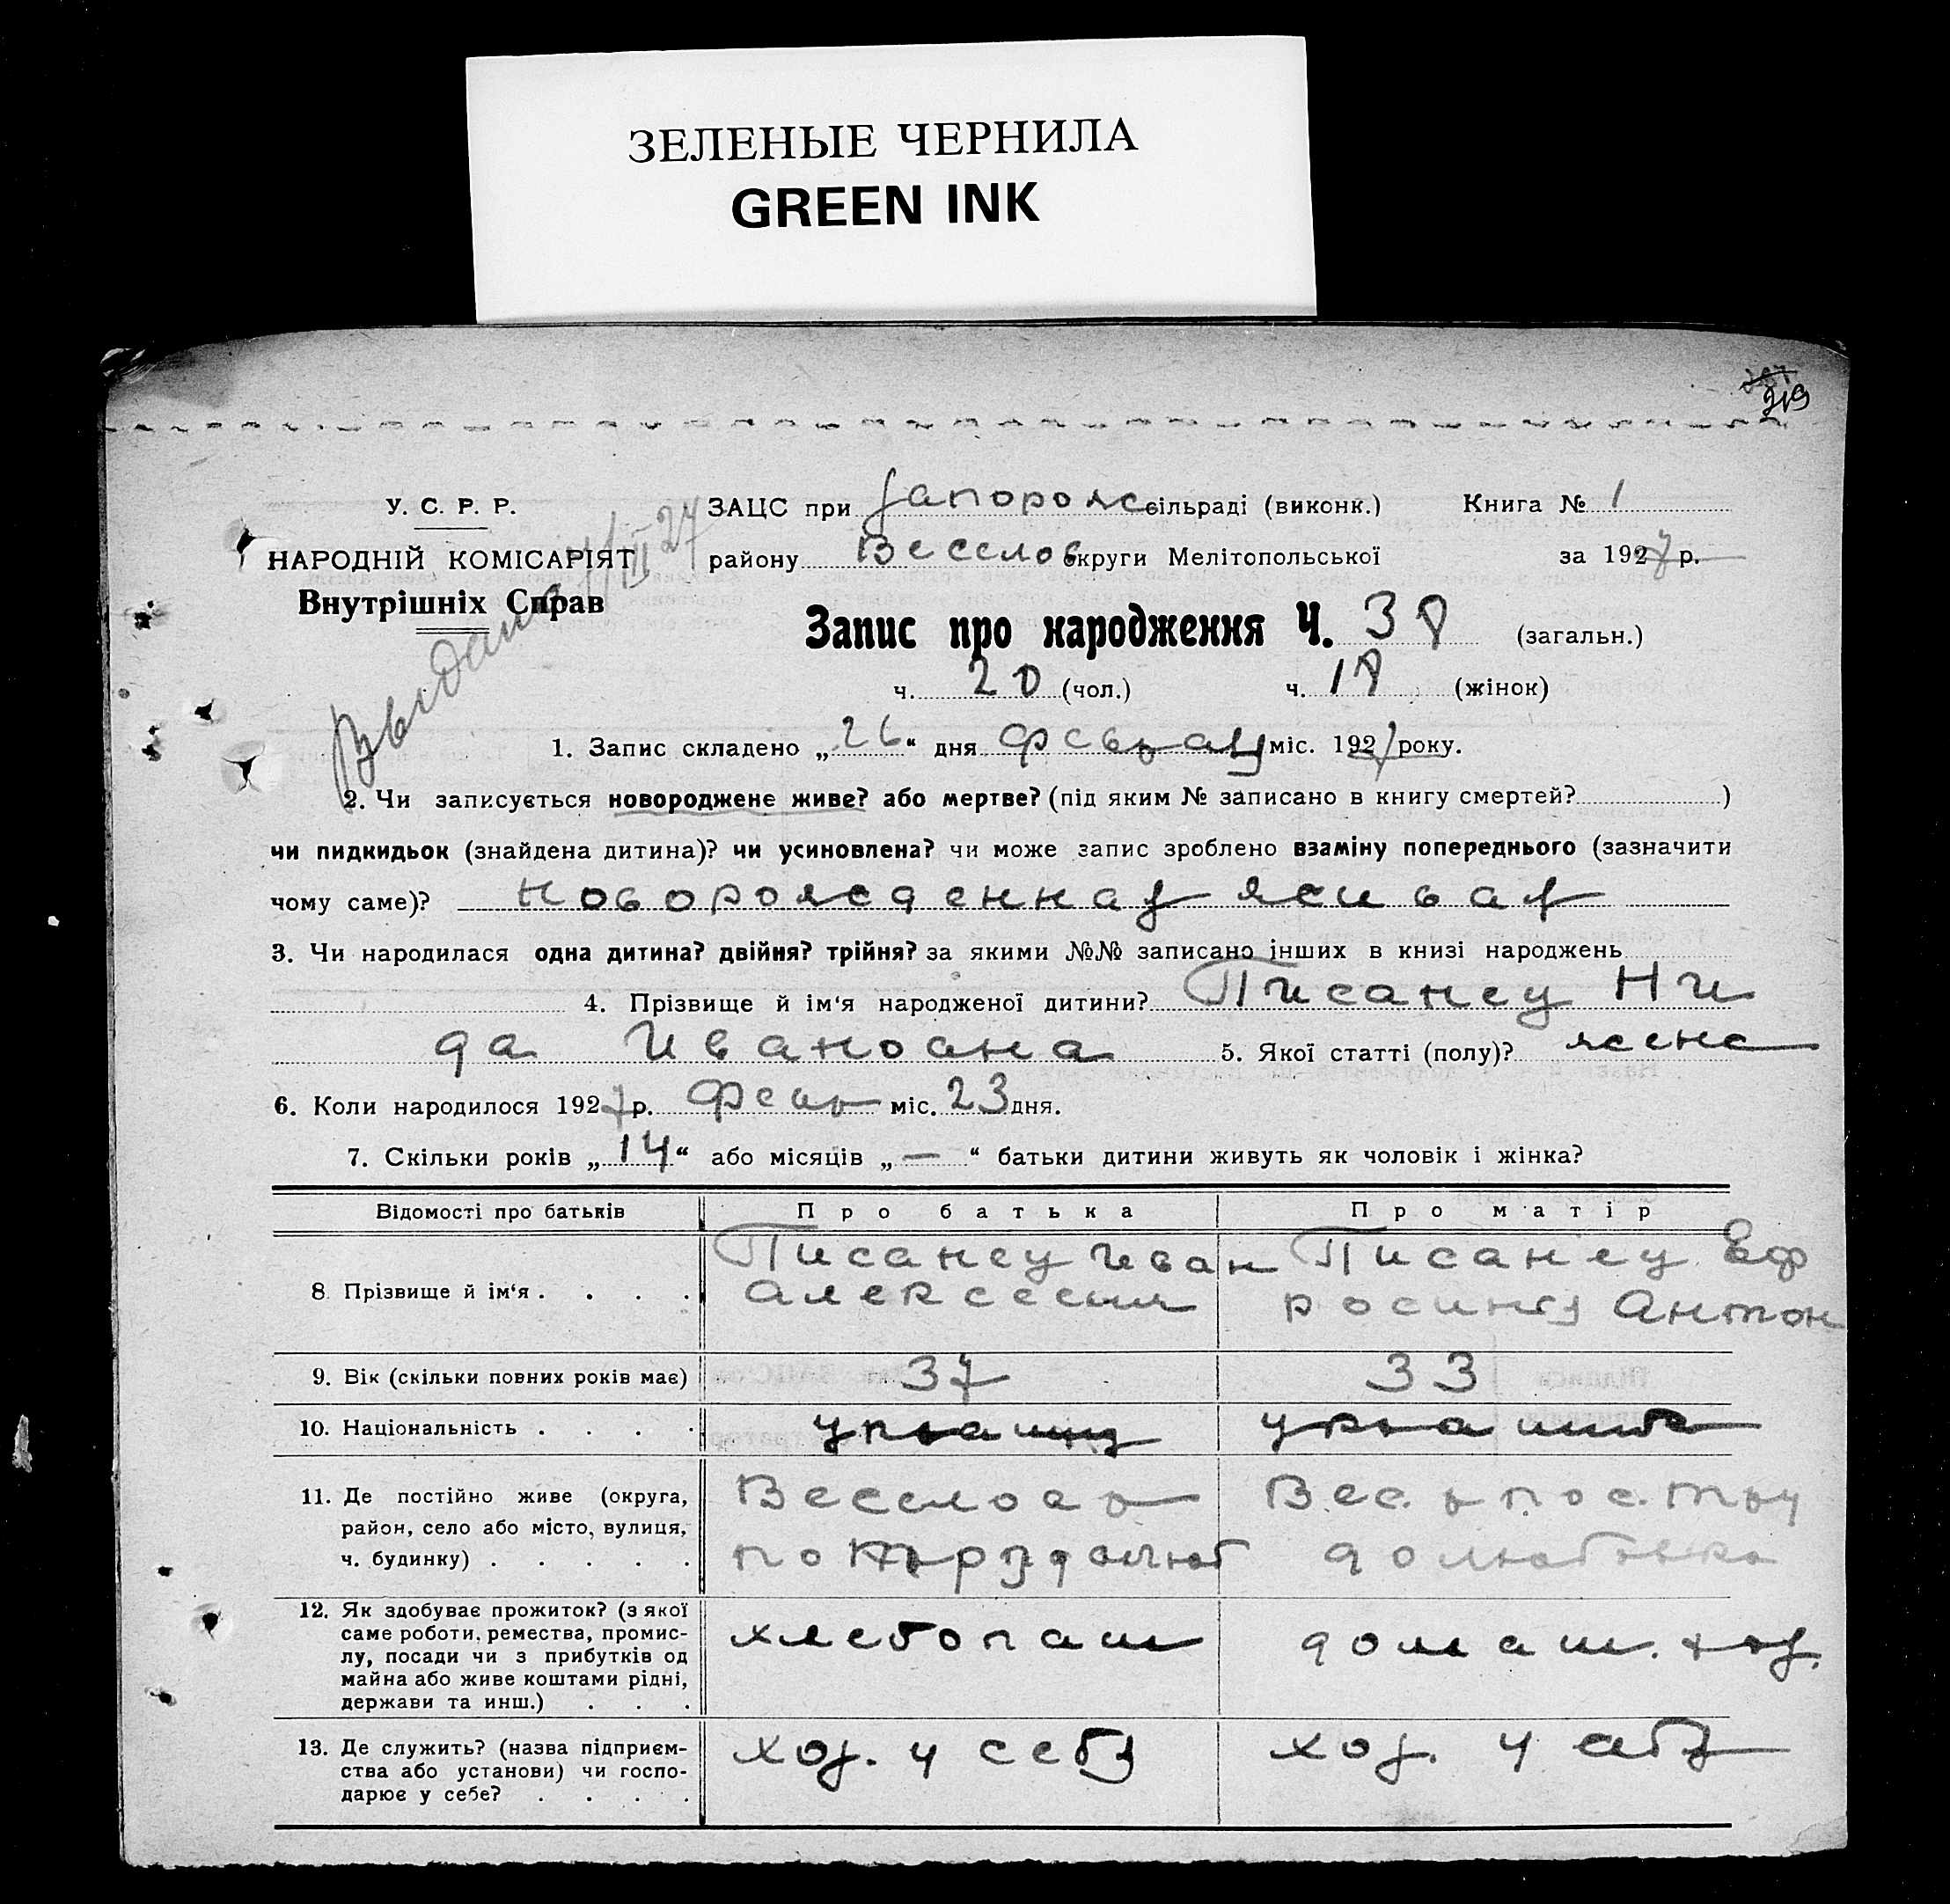 ЗЕЛЕНЫЕ ЧЕРНИЛА
GREEN INK
319
У. С. Р. Р.
НАРОДНІЙ КОМІСАРІЯТ
Внутрішніх Справ
Выдано III 27
ЗАЦС при Запорожс сільраді (виконк.) Книга № 1
району Веселов округи Мелітопольської за 1927 р.
Запис про народження Ч. 38 (загальн.)
ч. 20 (чол.) ч. 18 (жінок)
1. Запис складено „26“ дня февраля міс. 1927 року.
2. Чи записується новороджене живе? або мертве? (під яким № записано в книгу смертей? )
чи пидкидьок (знайдена дитина)? чи усиновлена? чи може запис зроблено взаміну попереднього (зазначити
чому саме)? новорожденная живая
3. Чи народилася одна дитина? двійня? трійня? за якими №№ записано інших в книзі народжень
4. Прізвище й ім‘я народженої дитини? Писанец Ни
да Ивановна 5. Якої статті (полу)? женс
6. Коли народилося 1927 р. Февр міс. 23 дня.
7. Скільки років „14“ або місяців „—“ батьки дитини живуть як чоловік і жінка?
Відомості про батьків Про батька Про матір
8 Прізвище й ім‘я . . . .
Писанец Иван
Алексееви
Писанец Еф
росиния Антон
9. Вік (скільки повних років має) 37 33
10. Національність . . . . украинец украинка
11. Де постійно живе (округа,
район, село або місто, вулиця,
ч. будинку) . . . . .
Веселов р
пос Трудолюб
Вес. р пос. Тру
долюбовка
12. Як здобуває прожиток? (з якої
саме роботи, ремества, промис-
лу, посади чи з прибутків од
майна або живе коштами рідні,
держави та инш.) . . .
хлебопаш
домаш. хоз.
13. Де служить? (назва підприєм-
ства або установи) чи госпо-
дарює у себе? . . . .
хоз. у себя
хоз. у себя